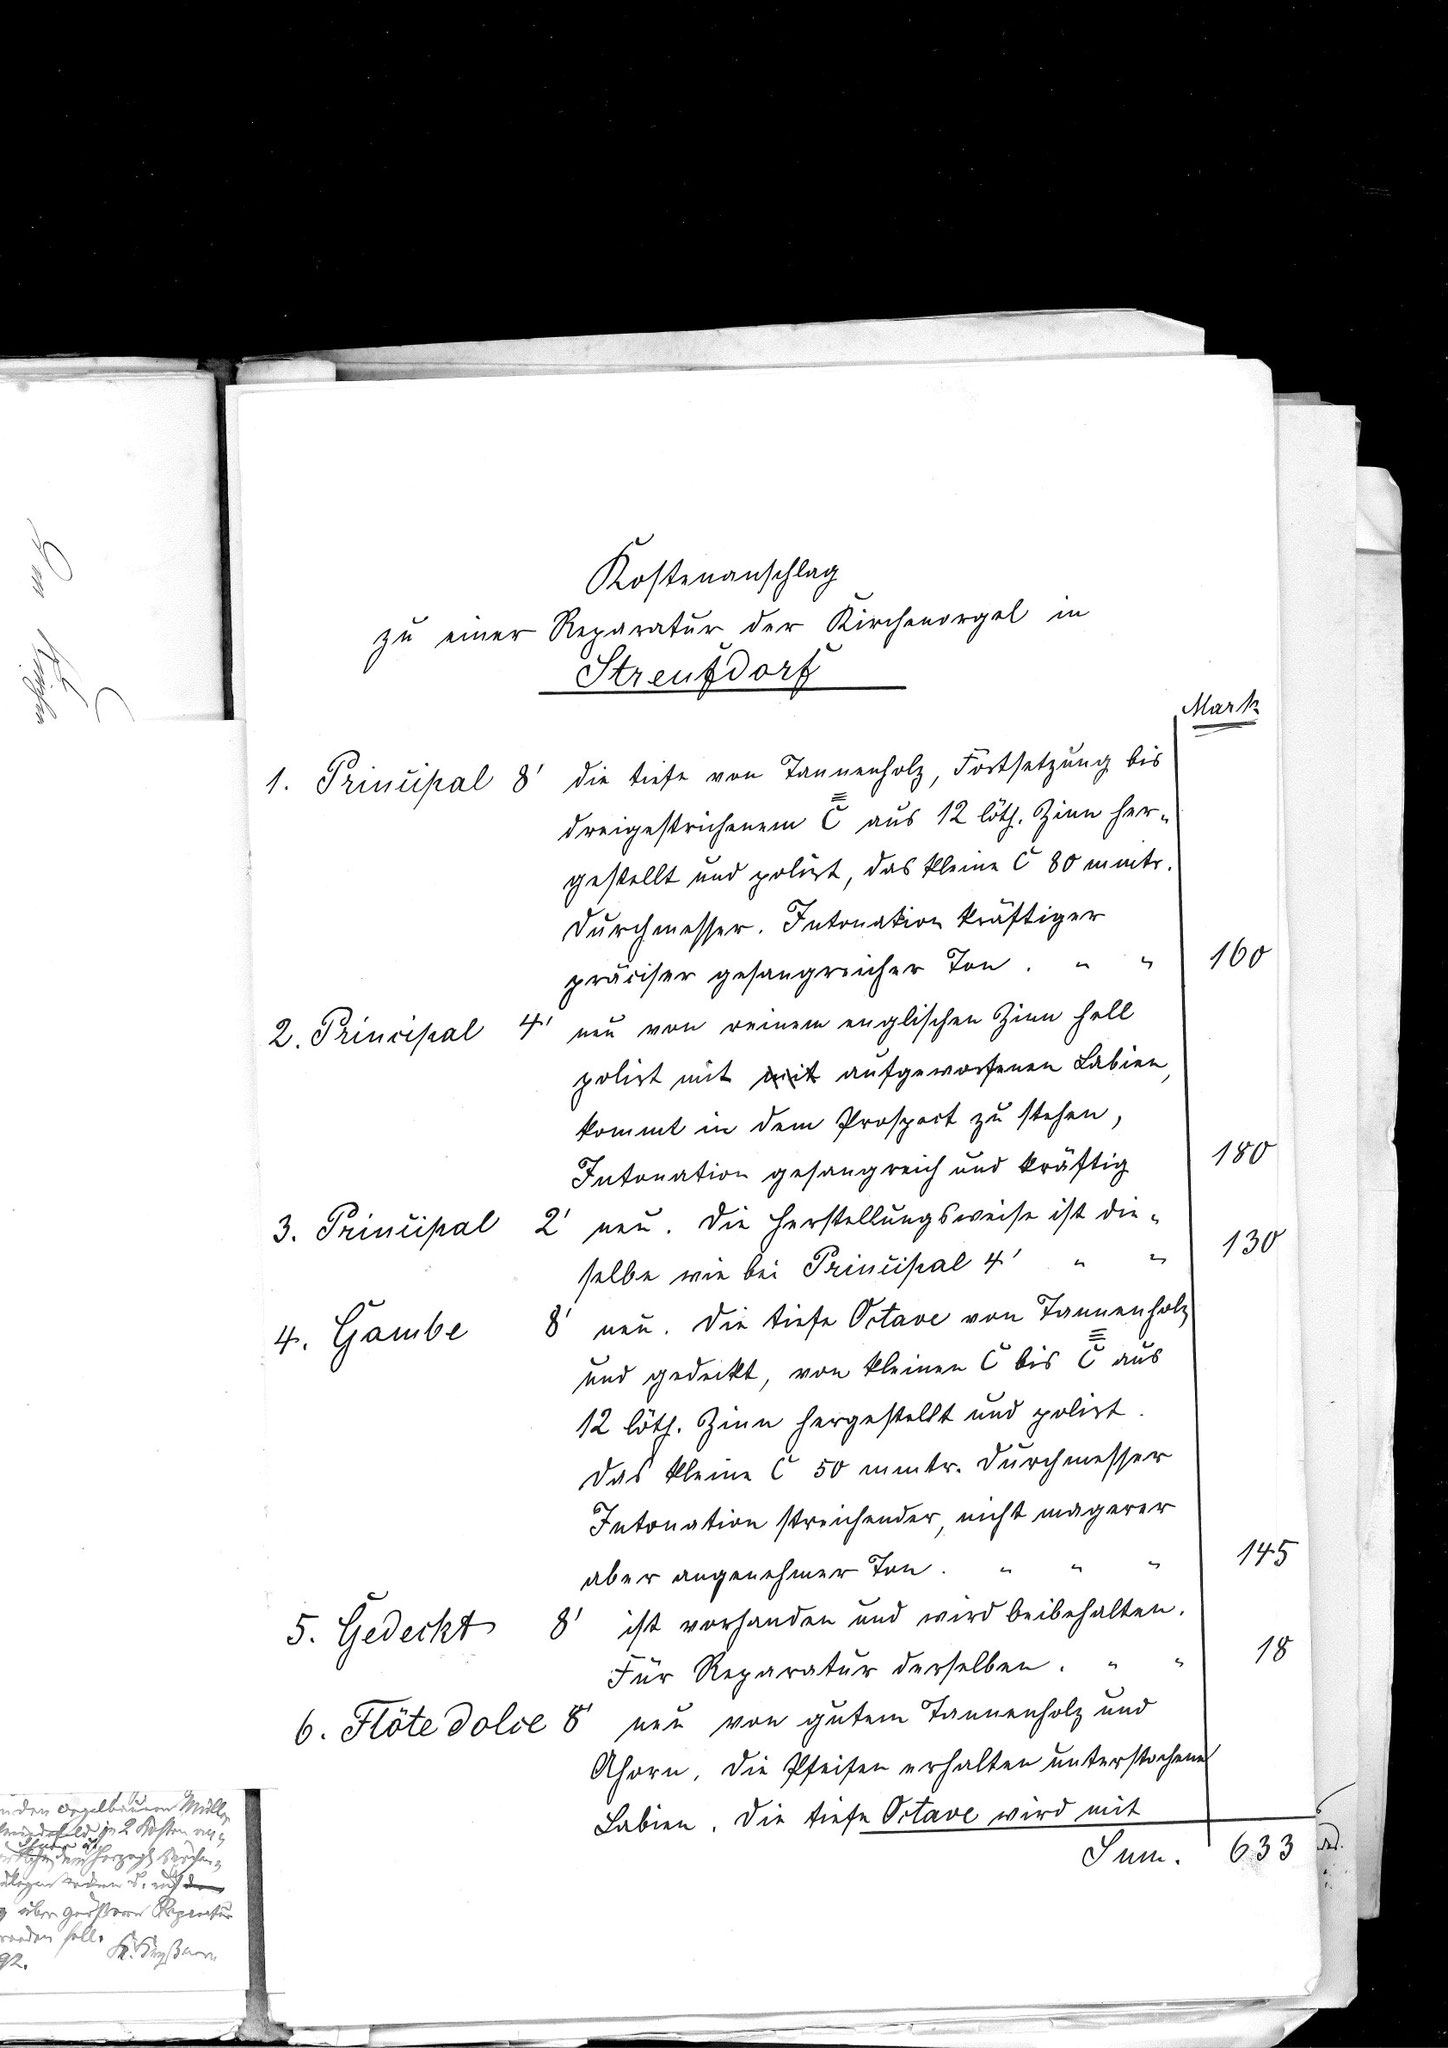 Kostenanschlag
zu einer Reparatur der Kirchenorgel in
Streufdorf
Mark
1. Principal 8' die tiefe von Tannenholz, Fortsetzung bis
dreigestrichenem C̿̄ aus 12 löth. Zinn her-
gestellt und polirt, das kleine C 80 mmtr.
Durchmesser. Intonation kräftiger
präciser gesangreicher Ton. " " 160
2. Principal 4' neu von reinem englischen Zinn hell
polirt mit mit aufgeworfenen Labien,
kommt in dem Prospect zu stehen,
Intonation gesangreich und kräftig 180
3. Principal 2' neu. Die Herstellungsweise ist die-
selbe wie bei Principal 4' " " 130
4. Gambe 8' neu. Die tiefe Octave von Tannenholz
und gedeckt, von kleinen C bis C̿̄ aus
12 löth. Zinn hergestellt und polirt.
Das kleine C 50 mmtr. Durchmesser
Intonation streichender, nicht magerer
aber angenehmer Ton. " " " 145
5. Gedeckt 8' ist vorhanden und wird beibehalten.
Für Reparatur derselben. " " 18
6. Flöte dolce 8' neu von gutem Tannenholz und
Ahorn. Die Pfeifen erhalten unterstochene
Labien. Die tiefe Octave wird mit
Sum. 633
den Orgelbauern
2 Kosten
über größere Reparatur
werden soll.
92.